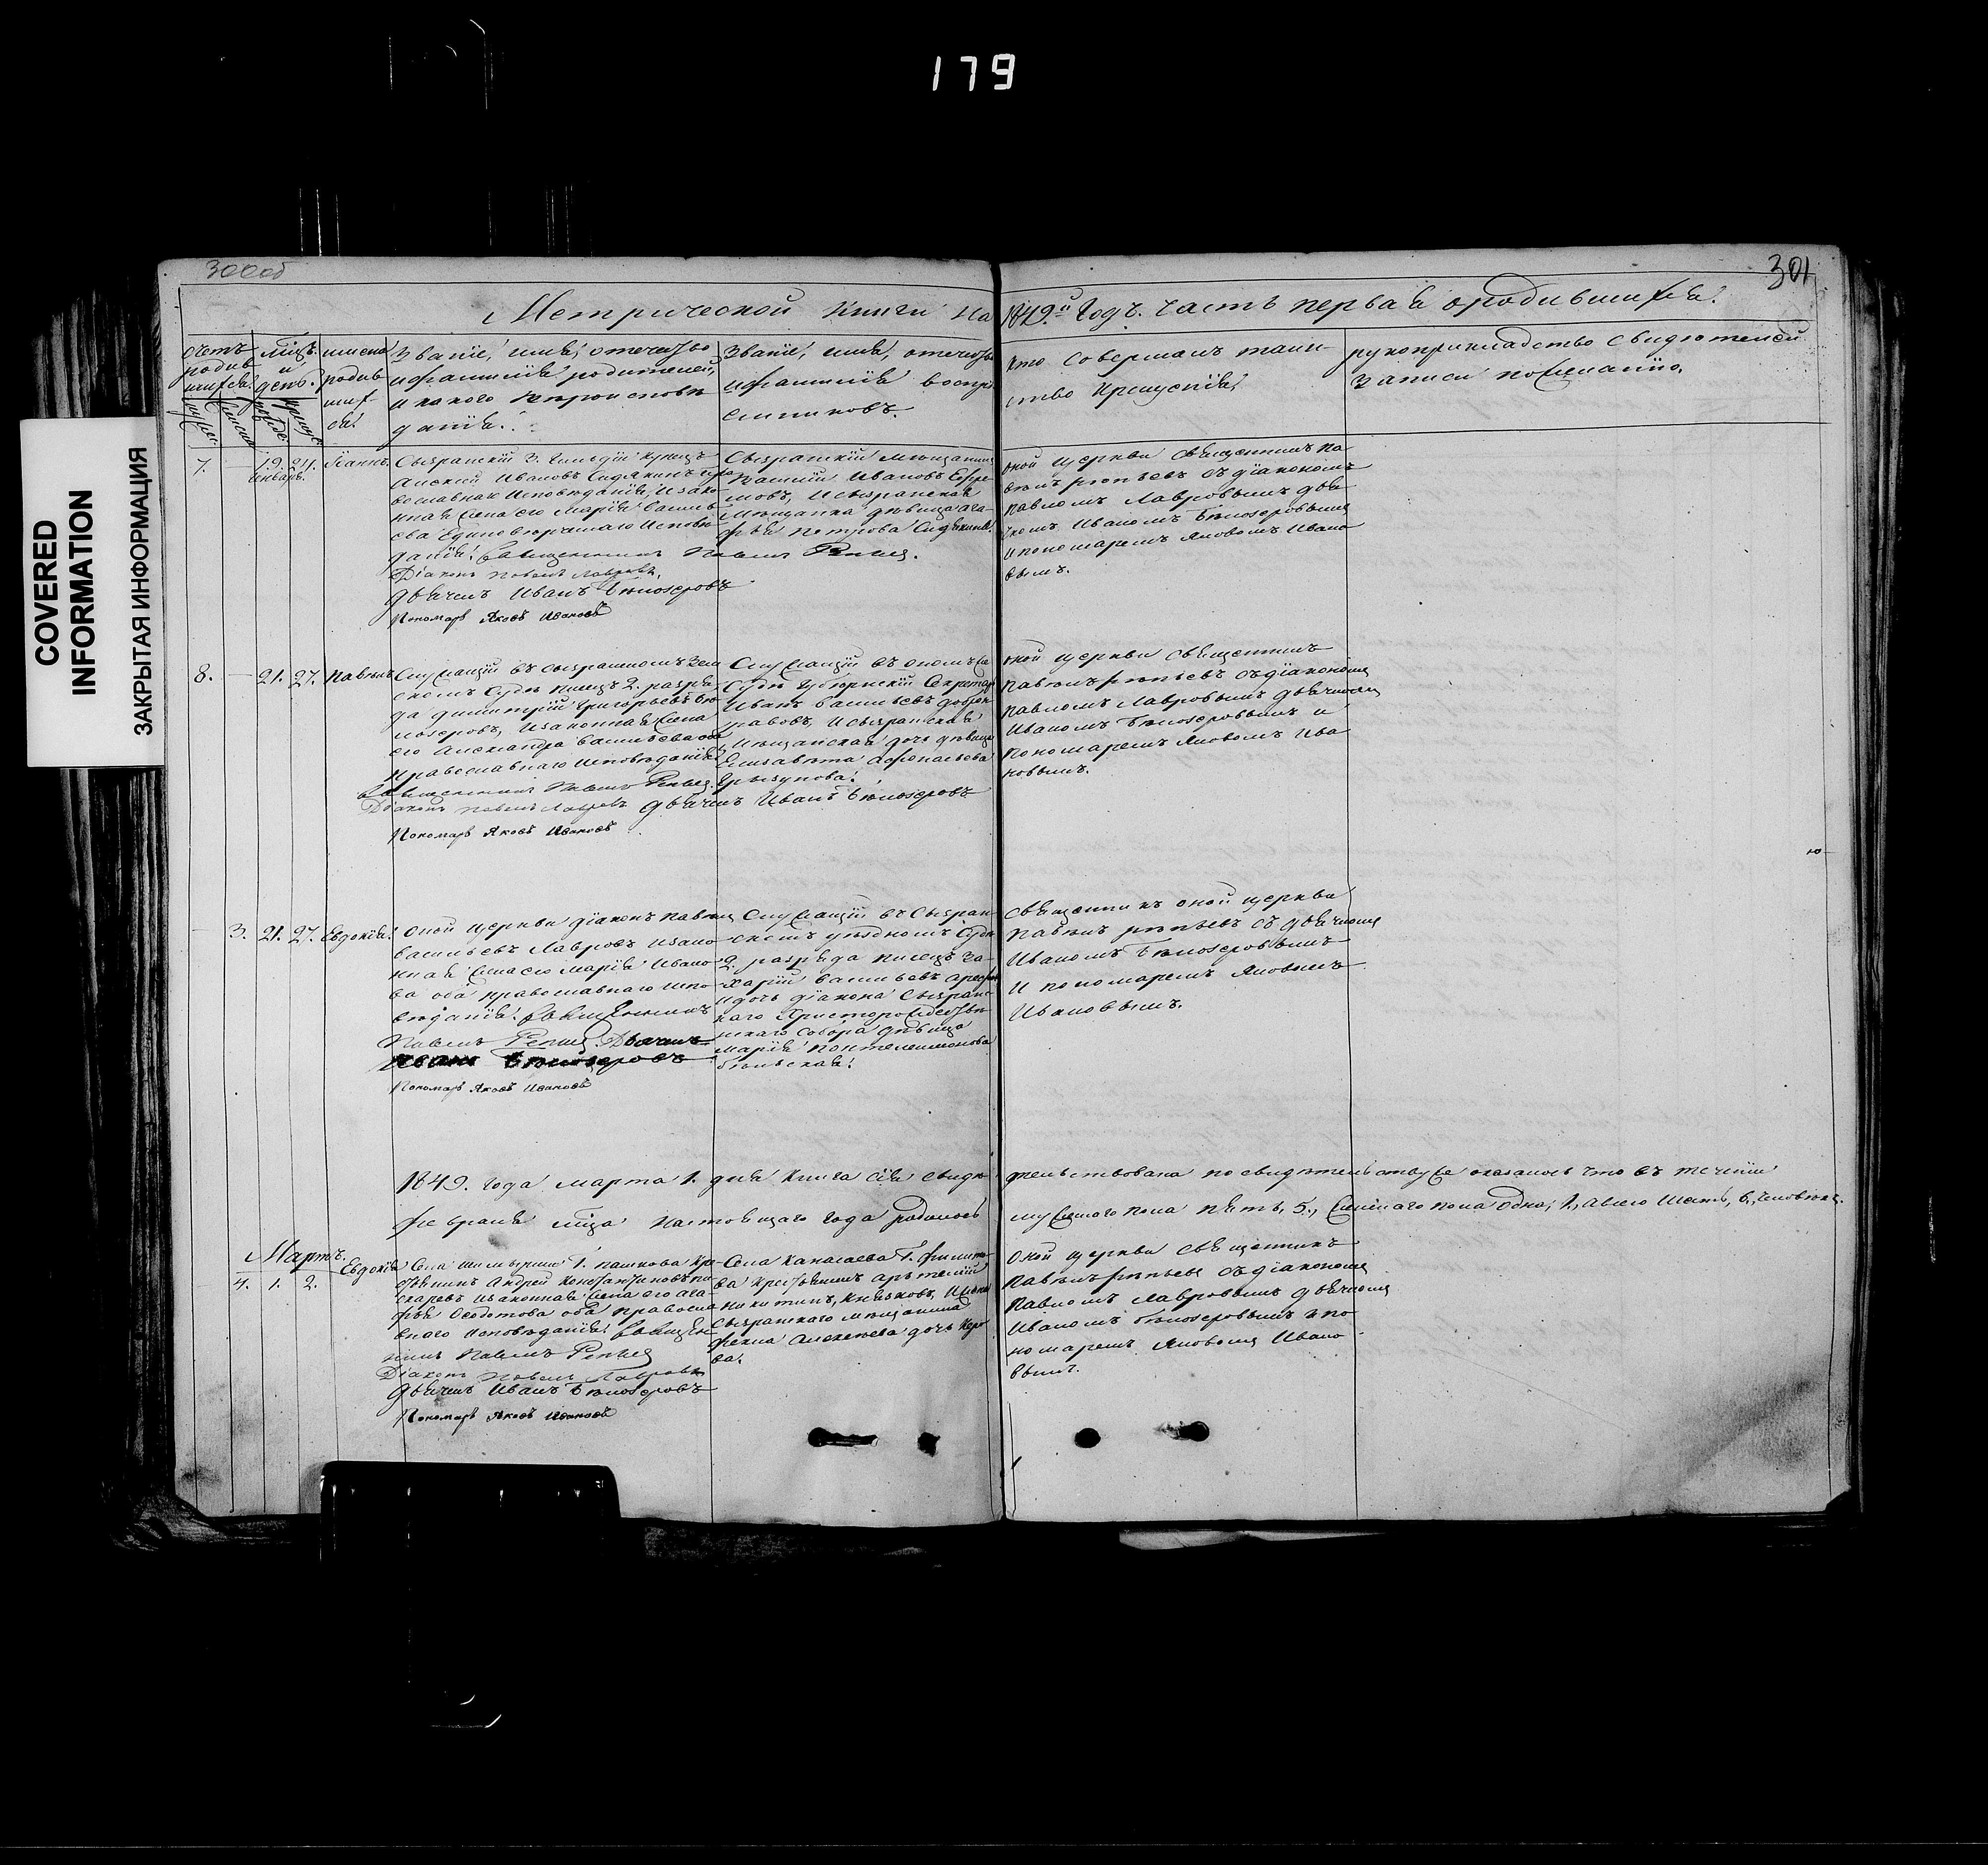 179
COVERED
INFORMATION
ЗАКРЫТАЯ ИНФОРМАЦИЯ
300об
301
Метрической книги на 1849й Годъ. часть первая о родившихся.
счетъ
родив
шихся.
мцъ.
и
день.
имена
родив
ших
ся.
Званіе, имя, отечество
и фамилія родителей,
и какого вѣроисповѣ
данія.
Званіе, имя, отечество
и фамилія воспрі
емниковъ.
кто совершалъ таин-
ство крещенія
рукоприкладство свидѣтелей
записи по желанію.
7.
19. 24.
Январь.
Іаннъ.
Сызранскій 3. Гильдіи купецъ
Ивановъ Сидякинъ пра
вославнаго Исповѣданія, и зако
нная жена его Марія василь
ева Единовѣрческаго Исповѣ
данія. Священникъ Павелъ Репьев.
Діаконъ Павелъ Лавровъ,
дьячекъ Иванъ Бѣлозеровъ
Пономарь Яковъ Ивановъ
Сызранскій мѣщанинъ
Ивановъ Ефре
мовъ, и сызранская
мѣщанка дѣвица Ага
фья петрова Сидякина.
оной церкви Священникъ Па
вѣлъ рѣпьевъ съ діакономъ
павломъ Лавровымъ дья
чкомъ Иваномъ Бѣлозеровымъ
и пономаремъ Яковомъ Ивано
вымъ.
8. 21. 27. Павелъ
Служащій въ сызранскомъ Зем
скомъ Судѣ писецъ 2. разря
да димитрій Григорьевъ Бѣ
лозеровъ, и законная жена
его Александра васильева оба
православнаго исповѣданія
Священникъ Павелъ Репьев.
Діаконъ Павелъ Лавровъ дьячекъ Иванъ Бѣлозеровъ
Пономарь Яковъ Ивановъ
Служащій въ ономъ же
Судѣ Губернскій Секретарь
Иванъ васильевъ добро
нравовъ, и сызранская
мѣщанская дочь дѣвица
Елизавета Афонасьева
оной церкви священникъ
павѣлъ рѣпьевъ съ діакономъ
павломъ Лавровымъ дьячкомъ
Иваномъ Бѣлозеровымъ и
пономаремъ Яковомъ Ива
новымъ.
3. 21. 27. Евдокія.
оной церкви діаконъ павелъ
васильевъ Лавровъ и зако
нная жена его марія Ивано
ва оба православнаго испо
вѣданія. Священникъ
Павелъ Репьев. Дьячекъ
Иванъ Бѣлозеровъ
Пономарь Яковъ Ивановъ
Служащій въ Сызран
скомъ уѣздномъ Судѣ
2. разряда писецъ за-
харій васильевъ
и дочь діакона Сызранс
каго Христорождествен
скаго Собора дѣвица
марія пантелеимонова
бѣльская.
священникъ оной церкви
павѣлъ рѣпьевъ съ дьячкомъ
Иваномъ Бѣлозеровымъ
и пономаремъ Яковомъ
Ивановымъ.
1849. года марта 1. дня книга сія свидѣтельствована по свидѣтельству же оказалось что въ теченіи
февраля мца настоящаго года родилось мужескаго пола пять, 5., женскаго пола одна, 1., а всего шесть, 6., человѣкъ.
Мартъ.
4. 1. 2. Евдокія
Села Г. пашкова кре
стьянинъ Андрей Константиновъ
и законная жена его Ага
фья Федотова оба православ
наго исповѣданія. Священ
никъ Павелъ Репьев
Діаконъ Павелъ Лавровъ
дьячекъ Иванъ Бѣлозеровъ
Пономарь Яковъ Ивановъ
Села Г.
крестьянинъ
никитинъ, Князковъ, и
Сызранскаго мѣщанина
фекла Алексеева дочь
ва.
Оной церкви священникъ
Павѣлъ рѣпьевъ съ діакономъ
Павломъ Лавровымъ дьячкомъ
Иваномъ Бѣлозеровымъ и по
номаремъ Яковомъ Ивано
вымъ.